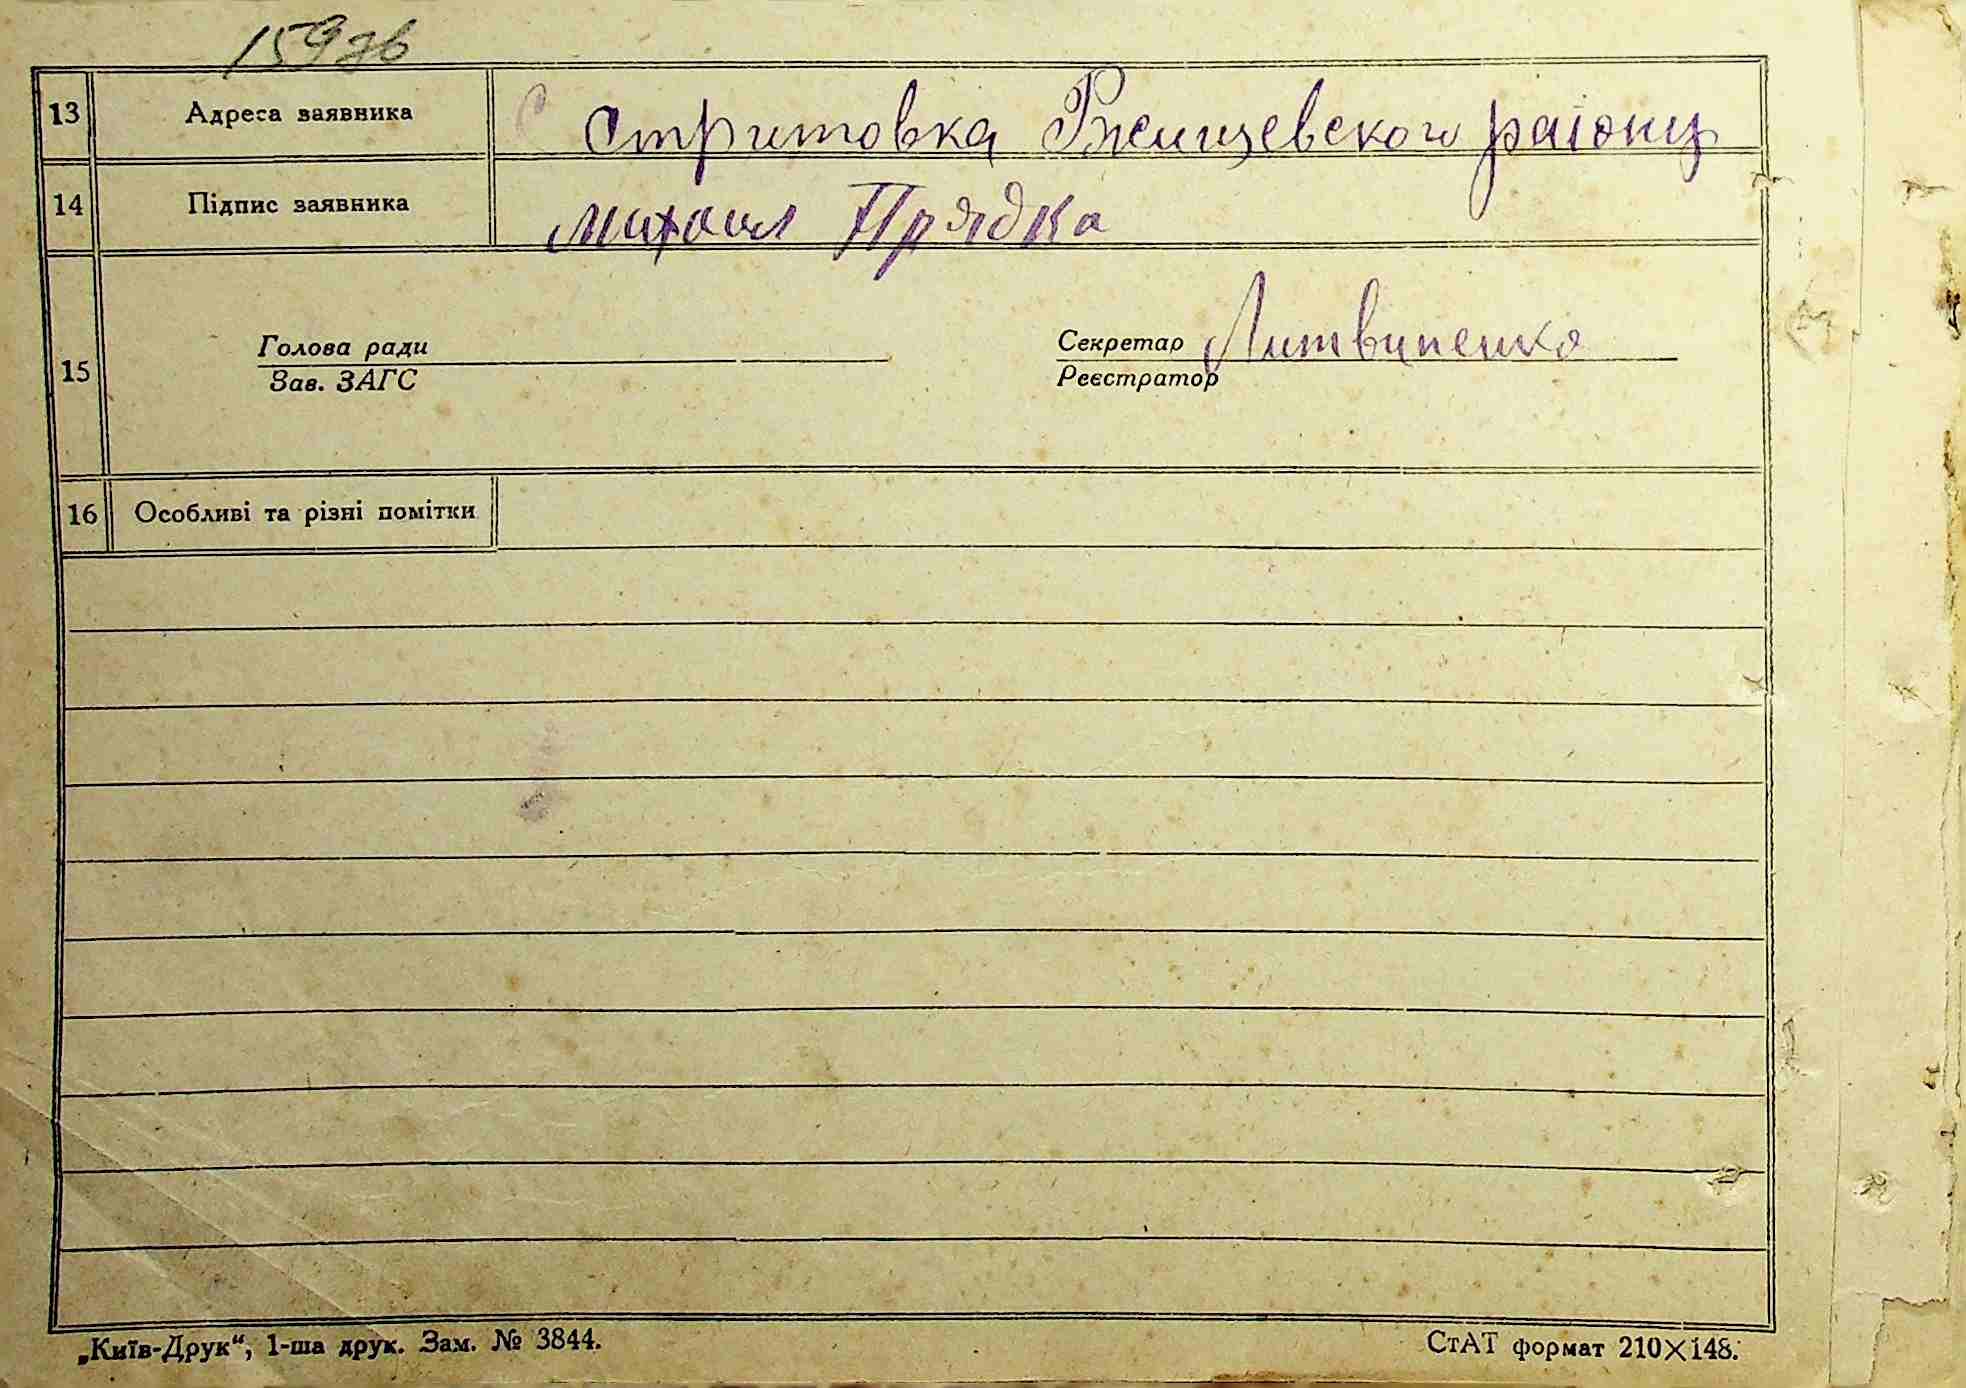 159зв
13 Адреса заявника с Стритовка Ржищевского району
14 Підпис заявника Михаил Прядка
15 Голова ради Секретар Литвиненко
Зав. ЗАГС Реєстратор
16 Особливі та різні помітки
„Київ-Друк“, 1-ша друк. Зам. № 3844. СтАТ формат 210×148.